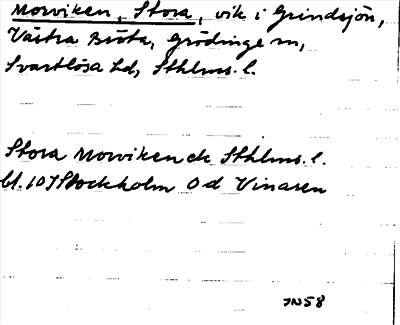 Morviken, Stora, vik i Grindsjön,
Västra Bröta, Grödinge sn,
Svartlösa hd, Sthlms. l.
Stora Morviken ek Sthlms. l.
bl. 107 Stockholm O d Vinaren
JN58